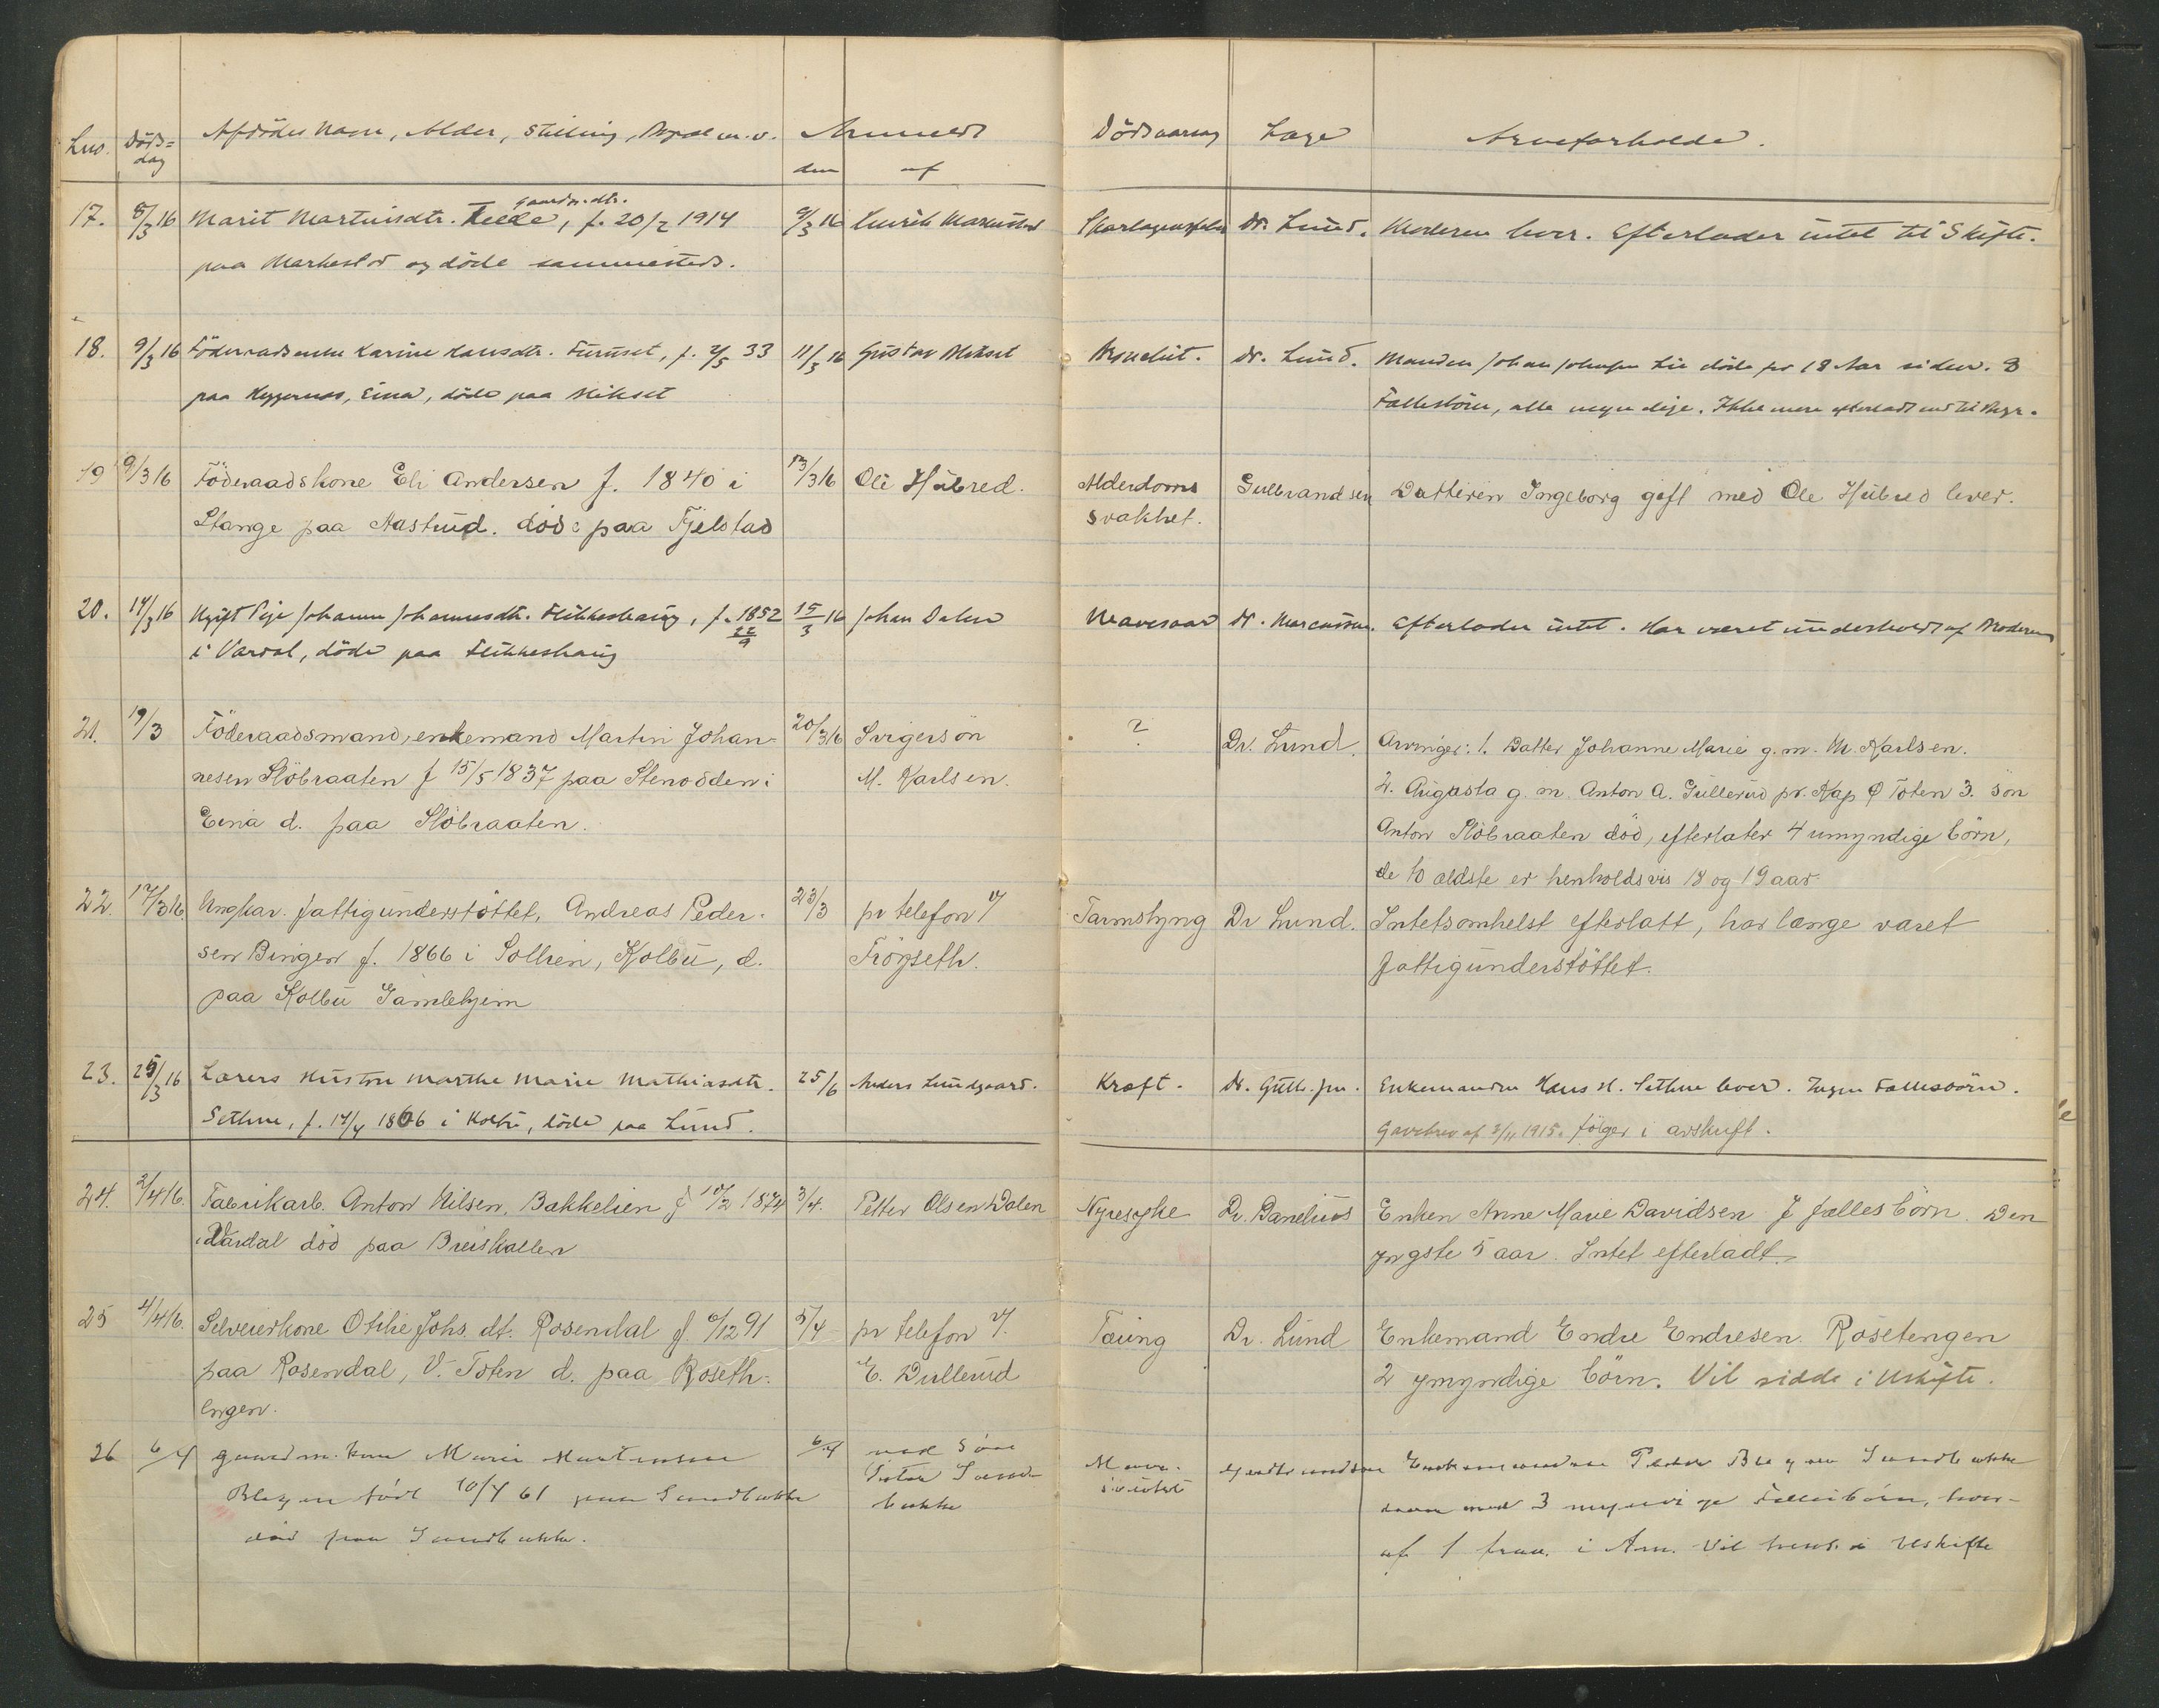 Lno. Döds= Afdödes Navn, Alder, Stilling, Bopæl m. v. Anmeldt Dödsaarsag Læge Arveforholde.
dag den af
gaardm.dtr.
17. 8/3 16 Marit Martinsdtr. f. 20/2 1914 9/3 16 Skarlagensfeber Dr. Lund. Moderen lever. Efterlader intet til Skifte.
paa og döde sammesteds.
18. 9/3 16 Föderaadsenke Karine Hansdtr. Furuset, f. 2/5 33 11/3 16 Gustav Mikset Bronchit. Dr. Lund. Manden Johan Lie döde for 18 Aar siden. 8
paa Eina, döde paa Mikset Fællesbörn, alle myndige. Ikke mere efterladt end til Begr.
19 9/3 16 Föderaadskone Eli Andersen f. 1840 i 13/3 16 Ole Hübred. Alderdoms Gulbrandsen Datteren Ingeborg gift med Ole Hübred lever.
Stange paa Aastüd. döde paa Fjelstad svakhet.
20. 14/3 16 Ugift Pige Johanne Johannesdtr. f. 1852 15/3 16 Johan Dalen Mavesaar Dr. Marcussen. Efterlader intet. Har været underholdt af Moderen
22/9
i Vardal, döde paa
21. 19/3 Föderaadsmand, enkemand Martin Johan- 20/3 16 Svigersön ? Dr. Lund. Arvinger: 1. Datter Johanne Marie g. m. M. Karlsen.
nesen Slöbraaten f 15/5 1837 paa Stenodden i M. Karlsen. 2. Augusta g. m. Anton A. Gullerud pr. Kap Ø Toten 3. sön
Eina d. paa Slöbraaten. Anton Slöbraaten död, efterlater 4 umyndige börn,
de to ældste er henholdsvis 18 og 19 aar
22. 17/3 16 Ungkar. fattigunderstöttet, Andreas Peder- 23/3 pr telefon v/ Tarmslyng Dr Lund. Intetsomhelst efterlatt, har længe været
sen Bingen f. 1866 i Sollien, Kolbu, d. Fröyseth. fattigunderstöttet.
paa Kolbu Gamlehjem
23. 25/3 16 Lærers Hustru Marthe Marie Mathiasdtr. 25/6 Anders Lundgaard. Kræft. Dr. Enkemanden Hans H. Sethne lever. Ingen Fællesbörn.
Sethne, f. 14/4 1866 i Kolbu, döde paa Lund. Gavebrev af 3/4 1915. fölger i avskrift.
24. 2/4 16. Fabrikarb. Anton Nilsen, Bakkelien f 10/2 1874 3/4. Petter Olsen Dalen Nyresyke Dr. Danelius Enken Anne Marie Davidsen 7 fælles börn. Den
i Vardal död paa Breiskallen yngste 5 aar. Intet efterladt.
25 4/4 16. Selveierkone Othie Johs. dt. Rosendal f. 6/12 91 5/4 pr telefon v/. Tæring Dr. Lund Enkemand Endre Endresen. Rösetengen
paa Rosendal, V. Toten d. paa Röseth- E. Dullerud 2 ymyndige börn. Vil sidde i Uskifte.
engen.
26 6/4 gaardm. kone Marie Martinsen 6/4 ved Sön Mave- Gulbrandsen Enkemanden Peder Sandbakke
född 10/4 61 paa Sandbakke Sand- med 3 myndige Fællesbörn, hvor-
död paa Sandbakke. bakke af 1 i Am. Vil hensid. i Uskifte